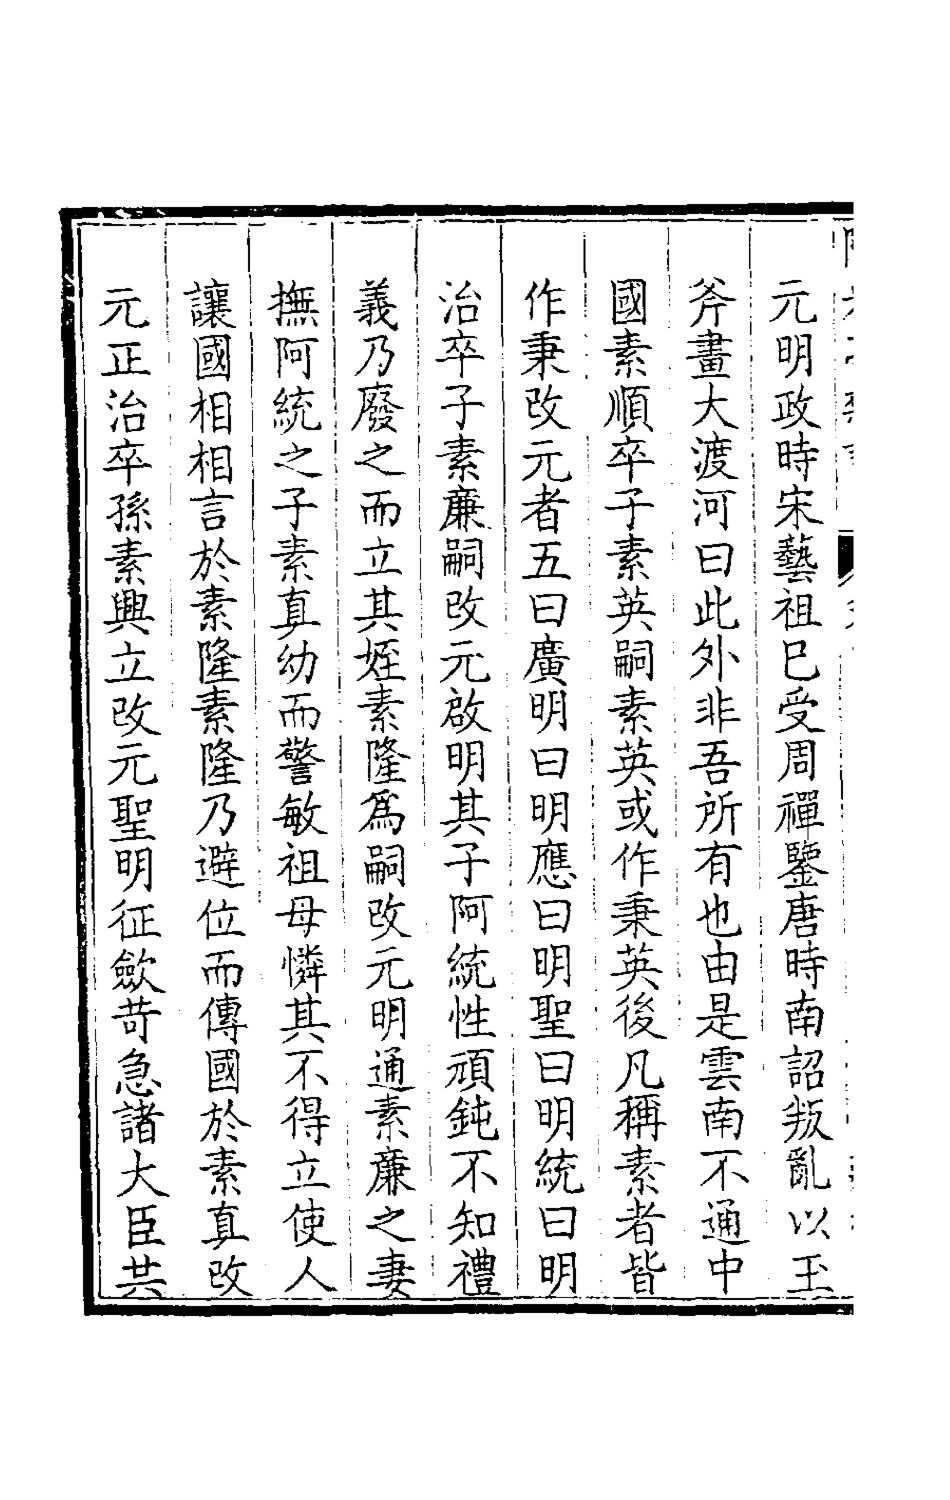 元明政時宋藝祖巳受周禪鑒唐時南詔叛亂以玉
斧畫大渡河曰此外非吾所有也由是雲南不通中
國素順卒子素英嗣素英或作秉英後凡稱素者皆
作秉改元者五曰廣明曰明應曰明聖曰明統曰明
治卒子素廉嗣改元啟明其子阿統性頑鈍不知禮
義乃廢之而立其姪素隆爲嗣改元明通素廉之妻
撫阿統之子素真幼而警敏祖母憐其不得立使人
讓國相相言於素隆素隆乃避位而傳國於素真改
元正治卒孫素興立改元聖明征歛苛急諸大臣共